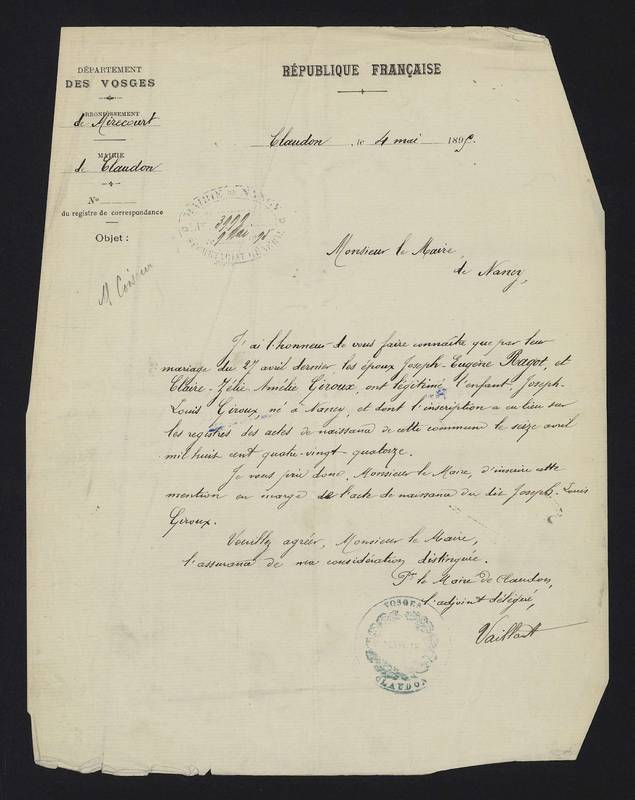 DÉPARTEMENT
DES VOSGES
RÉPUBLIQUE FRANÇAISE
ARRONDISSEMENT
de Mirecourt
MAIRIE
de Claudon
Claudon, le 4 mai 189
No
du registre de correspondance
Objet :
MAIRIE DE NANCY
SECRÉTARIAT GÉNÉRAL
Monsieur le Maire,
de Nancy,
J'ai l'honneur de vous faire connaître que par leur
mariage du 27 avril dernier, les époux Joseph-Eugène Ragot, et
Claire-Zélie-Amélie Giroux, ont légitimé l'enfant, Joseph-
Louis Giroux, né à Nancy, et dont l'inscription a eu lieu sur
les registres des actes de naissance de cette commune le seize avril
mil huit cent quatre-vingt-quatorze.
Je vous prie donc, Monsieur le Maire, d'inscrire cette
mention en marge de l'acte de naissance du dit Joseph-Louis
Giroux.
Veuillez agréer, Monsieur le Maire,
l'assurance de ma considération distinguée.
Pr le Maire de Claudon,
l'adjoint délégué,
Vaillant
VOSGES
CLAUDON